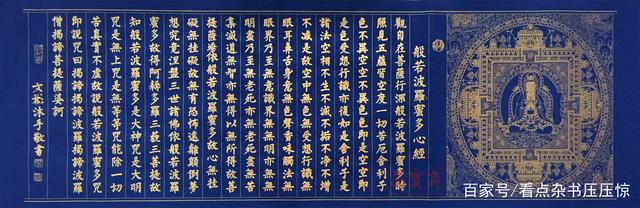 般若波羅蜜多心經
觀自在菩薩行深般若波羅蜜多時
照見五蘊皆空度一切苦厄舍利子
色不異空空不異色色即是空空即
是色受想行識亦復如是舍利子是
諸法空相不生不滅不垢不淨不增
不減是故空中無色無受想行識無
眼耳鼻舌身意無色聲香味觸法無
眼界乃至無意識界無無明亦無無
明盡乃至無老死亦無老死盡無苦
集滅道無智亦無得以無所得故菩
提薩埵依般若波羅蜜多故心無挂
礙無挂礙故無有恐怖遠離顛倒夢
想究竟涅盤三世諸佛依般若波羅
蜜多故得阿耨多羅三藐三菩提故
知般若波羅蜜多是大神咒是大明
咒是無上咒是無等等咒能除一切
苦真實不虛故說般若波羅蜜多咒
即說咒曰揭諦揭諦波羅揭諦波羅
僧揭諦菩提薩婆訶
沐手敬書
百家号/看点杂书压压惊